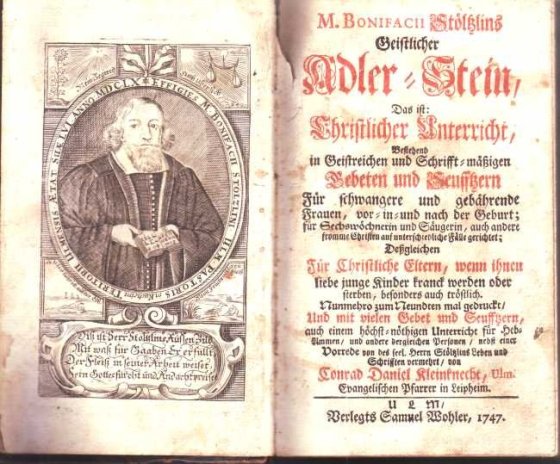 EFFIGIES M. BONIFACII STÖLTZLINI
ÆTAT. SUÆ LVI. ANNO MDCLX
Diß ist Herr Stöltzlins Aussen Bild
Mit waß für Gaaben Er erfüllt
Der Fleiß in seiner Arbeit weiset
M. BONIFACII Stöltzlins
Geistlicher
Adler-Stein,
Das ist:
Christlicher Unterricht,
Bestehend
in Geistreichen und Schrifft-mäßigen
Gebeten und Seufftzern
Für schwangere und gebährende
Frauen, vor- in- und nach der Geburt;
für Sechswöchnerin und Säugerin, auch andere
fromme Christen auf unterschiedliche Fälle gerichtet;
Deßgleichen
Für Christliche Eltern, wenn ihnen
liebe junge Kinder kranck werden oder
sterben, besonders auch tröstlich.
Nunmehro zum Neundten mal gedruckt/
Und mit vielen Gebet und Seufftzern,
auch einem höchst-nöthigen Unterricht für Heb-
Ammen, und andere dergleichen Personen, nebst einer
Vorrede von des seel. Herrn Stöltzlins Leben und
Schrifften vermehrt, von
Conrad Daniel Kleinknecht, Ulm.
Evangelischen Pfarrer in Leipheim.
ULM,
Verlegts Samuel Wohler, 1747.